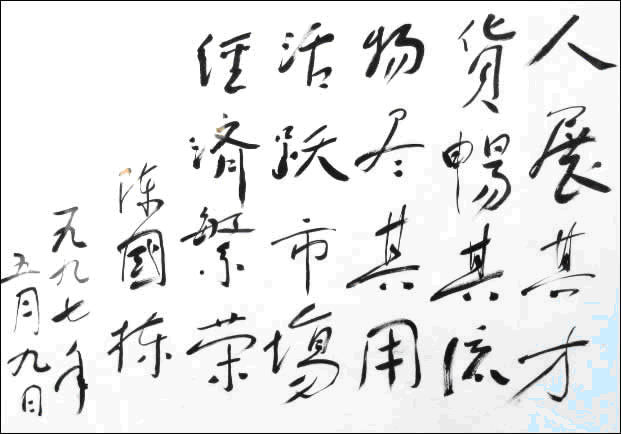 人展其才
貨暢其流
物尽其用
活跃市場
经済繁荣
陈國栋
一九九七年
五月九日